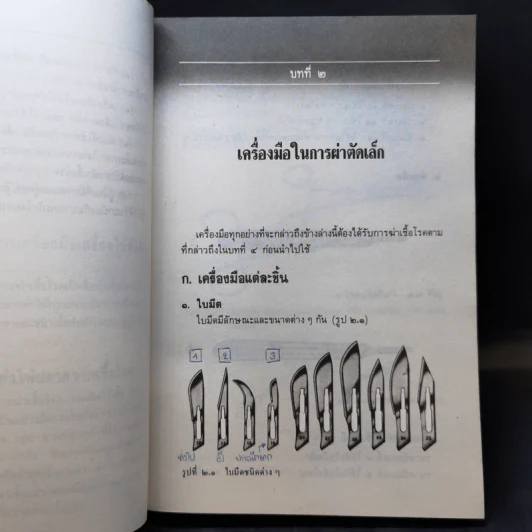 บทที่ ๒
เครื่องมือในการผ่าตัดเล็ก
เครื่องมือทุกอย่างที่จะกล่าวถึงข้างล่างนี้ต้องได้รับการฆ่าเชื้อโรคตาม
ที่กล่าวถึงในบทที่ ๔ ก่อนนำไปใช้
ก. เครื่องมือแต่ละชิ้น
๑. ใบมีด
ใบมีดมีลักษณะและขนาดต่าง ๆ กัน (รูป ๒.๑)
1 2 3
รูปที่ ๒.๑ ใบมีดชนิดต่าง ๆ